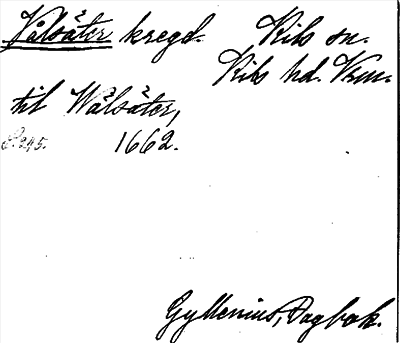 Vålsäter kregd. Kils sn.
Kils hd. Vrml.
til Wålsäter,
S. 245. 1662.
Gyllenius, Dagbok.